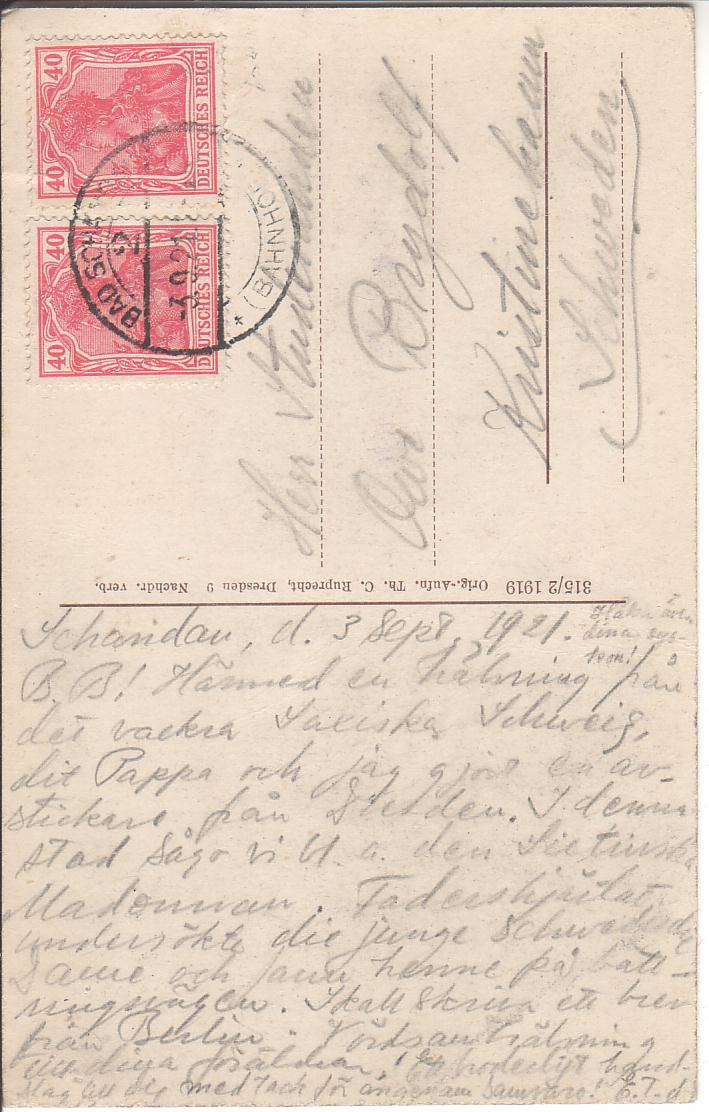 40
DEUTSCHES REICH
40
40
DEUTSCHES REICH
40
BAD SCHANDAU
(BAHNHOF)
-3.9.21
Herr
Brydolf
Kristinehamn
Schweden
315/2 1919 Orig.-Aufn. Th. C. Ruprecht, Dresden 9 Nachdr. verb.
Schandau, d. 3 Sept. 1921.
Hälsa även
dina sys-
kon!
B. B! Härmed en hälsning från
det vackra Saxiska Schweiz,
dit Pappa och jag gjort en av-
stickare från Dresden. I denna
stad sågo vi bl. a. den Sixtinska
Madonnan. Fadershjärtat
undersökte die junge Schwedische
Dame och fann henne på bätt-
ringsvägen. Skall skriva ett brev
från Berlin. Vördsam hälsning
till dina föräldrar! Ett broderligt hand-
slag till dig med tack för angenäm samvaro! E. T-d